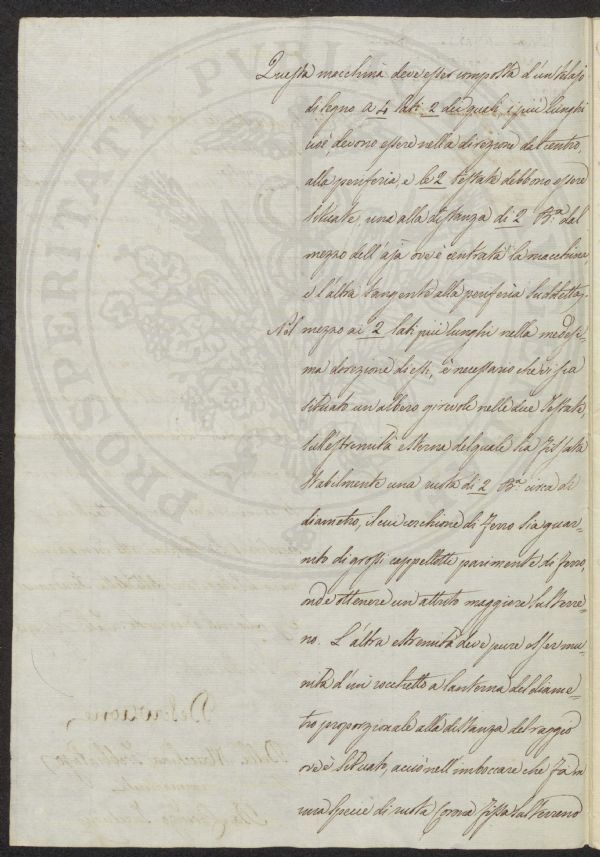 Questa macchina deve esser composta d'un telajo
di legno a 4 lati 2 dei quali, i più lunghi
cioè, devono essere nella direzione dal centro,
alla periferia, e le 2 testate debbono essere
situate, una alla distanza di 2 B.a dal
mezzo dell'aja ov'è centrata la macchina,
e l'altra tangente alla periferia suddetta;
Nel mezzo ai 2 lati più lunghi nella medesi=
ma direzione di essi, è necessario che vi sia
situato un albero girevole nelle due testate,
sull'estremità esterna del quale sia fissata
stabilmente una ruota di 2 B.a circa di
diametro, il cui cerchione di ferro sia guar=
nito di grossi cappellotti parimente di ferro,
onde ottenere un attrito maggiore sul terre=
no. L'altra estremità deve pure esser mu=
nita d'un rocchetto a lanterna del diame=
tro proporzionale alla distanza del raggio
ov'è situato, acciò nell'imboccare che fa in
una specie di ruota corona fissa sul terreno
PROSPERITATI PUBLICAE
Descrizione
Della Macchina